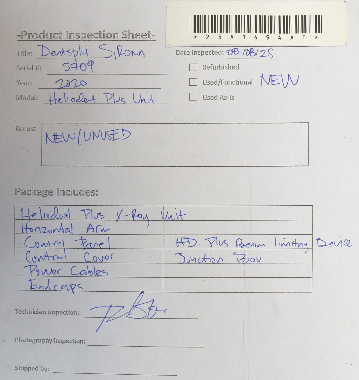 -Product Inspection Sheet-
Title: Dentsply Sirona
Date Inspected: 08/08/25
Serial #: 5709
Refurbished
Year: 2020
Used/Functional NEW
Model: Heliodent Plus Unit
Used As-Is
Notes:
NEW/UNUSED
Package Includes:
Heliodent Plus X-Ray Unit
Horizontal Arm
Control Panel HD. Plus Beam limiting Device
Control Cover Junction Box
Power Cables
Endcaps
Technician Inspection:
Photography Inspection:
Shipped by: